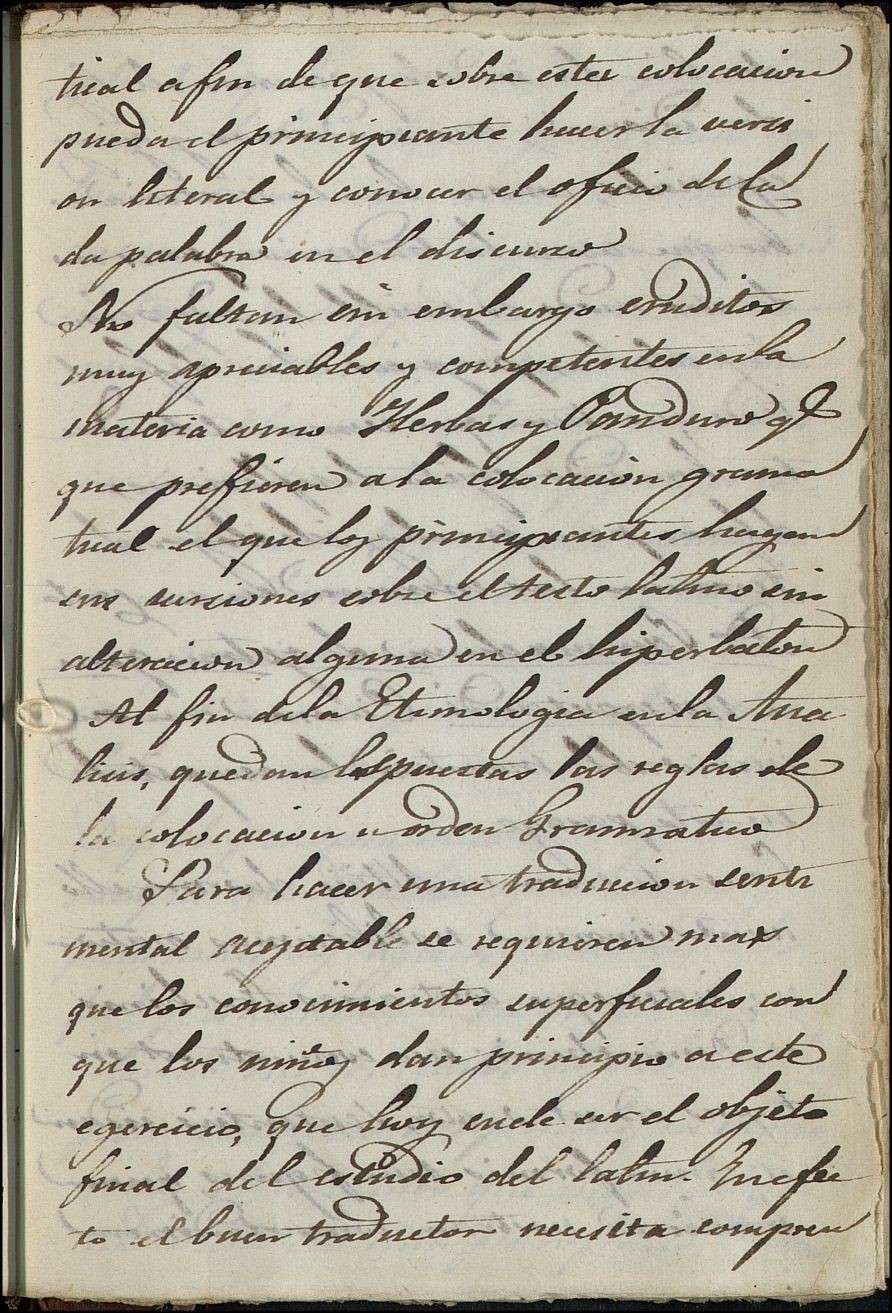 tical a fin de que sobre esta colocacion
pueda el principiante hacer la versi
on literal y conocer el oficio de Ca
da palabra en el discurso
No faltan sin embargo eruditos
muy apreciables y competentes en la
materia como Herbas y Panduro q.e
que prefieren a la colocacion grama
tical el que los principiantes hagan
sus versiones sobre el testo latino sin
alteracion alguna en el hiperbaton
Al fin de la Etimologia en la Ana
lisis, quedan puestas las reglas de
la colocacion u orden Gramatico
Para hacer una traduccion senti
mental aceptable se requiren mas
que los conocimientos superficiales con
que los niños dan principio a este
egercicio, que hoy suele ser el objeto
final del estudio del latin. En efec
to el buen traductor necesita compren